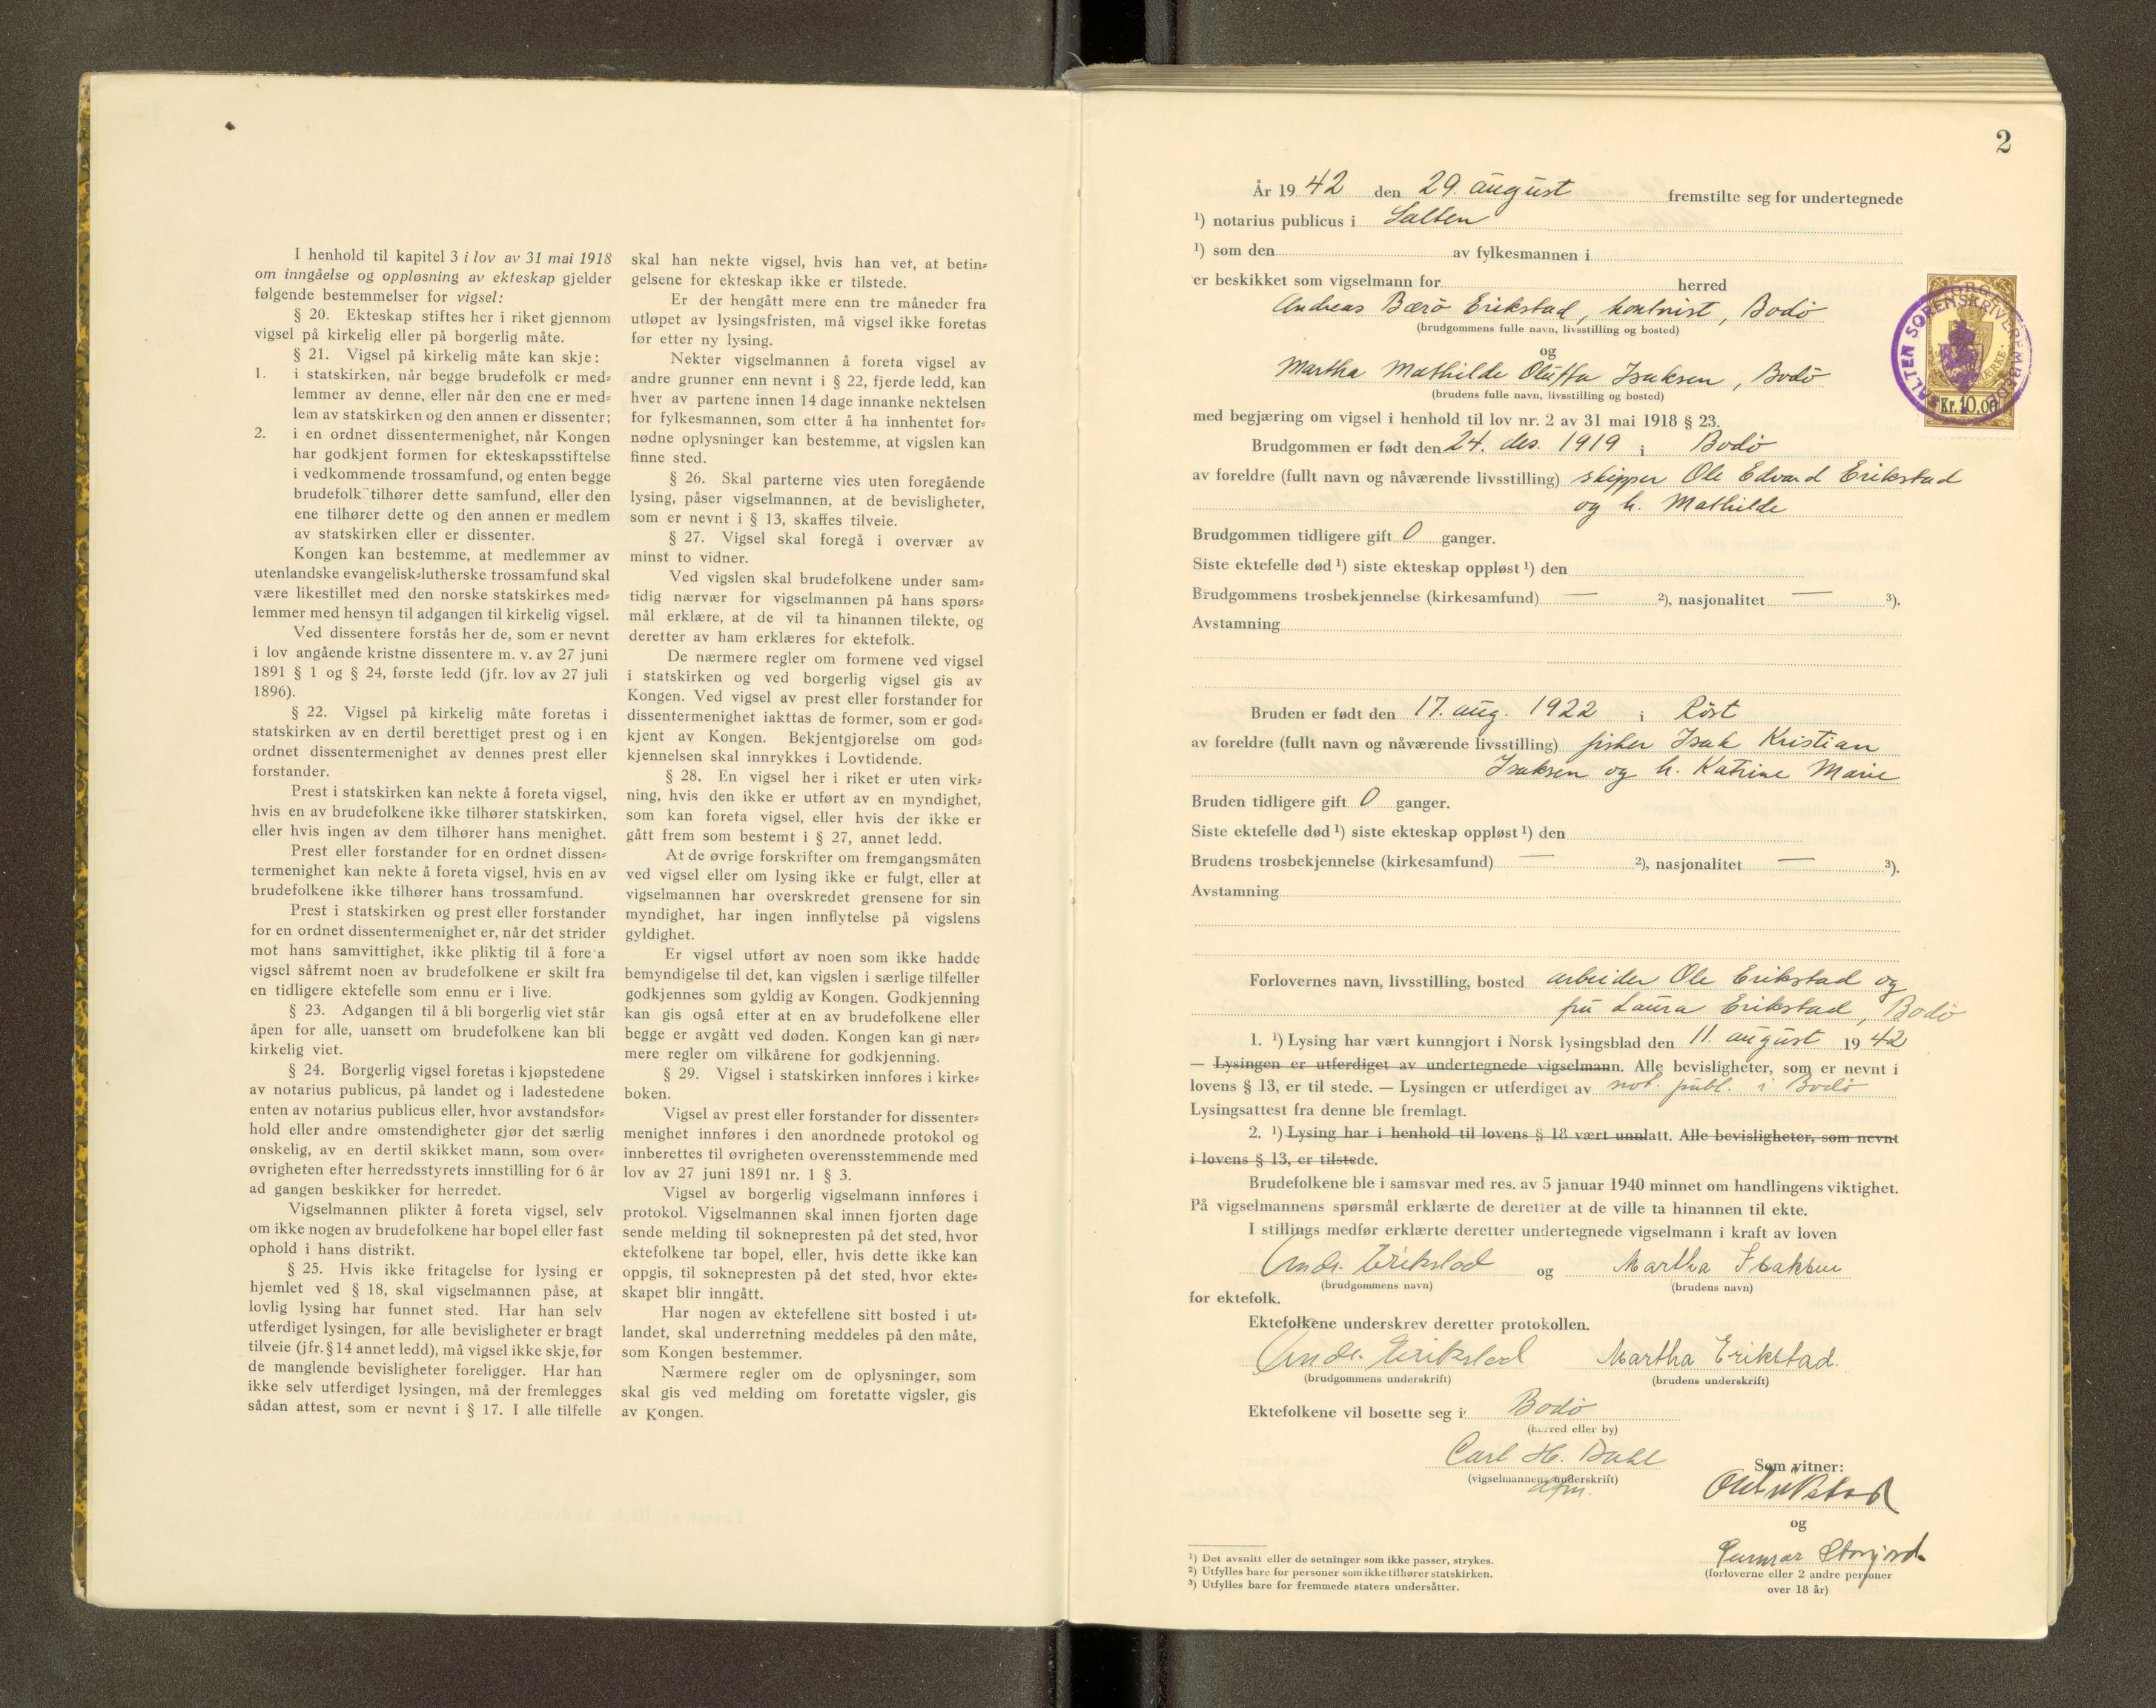 I henhold til kapitel 3 i lov av 31 mai 1918
om inngåelse og oppløsning av ekteskap gjelder
følgende bestemmelser for vigsel:
§ 20. Ekteskap stiftes her i riket gjennom
vigsel på kirkelig eller på borgerlig måte.
§ 21. Vigsel på kirkelig måte kan skje:
1. i statskirken, når begge brudefolk er med-
lemmer av denne, eller når den ene er med-
lem av statskirken og den annen er dissenter;
2. i en ordnet dissentermenighet, når Kongen
har godkjent formen for ekteskapsstiftelse
i vedkommende trossamfund, og enten begge
brudefolk tilhører dette samfund, eller den
ene tilhører dette og den annen er medlem
av statskirken eller er dissenter.
Kongen kan bestemme, at medlemmer av
utenlandske evangelisk-lutherske trossamfund skal
være likestillet med den norske statskirkes med-
lemmer med hensyn til adgangen til kirkelig vigsel.
Ved dissentere forstås her de, som er nevnt
i lov angående kristne dissentere m. v. av 27 juni
1891 § 1 og § 24, første ledd (jfr. lov av 27 juli
1896).
§ 22. Vigsel på kirkelig måte foretas i
statskirken av en dertil berettiget prest og i en
ordnet dissentermenighet av dennes prest eller
forstander.
Prest i statskirken kan nekte å foreta vigsel,
hvis en av brudefolkene ikke tilhører statskirken,
eller hvis ingen av dem tilhører hans menighet.
Prest eller forstander for en ordnet dissen-
termenighet kan nekte å foreta vigsel, hvis en av
brudefolkene ikke tilhører hans trossamfund.
Prest i statskirken og prest eller forstander
for en ordnet dissentermenighet er, når det strider
mot hans samvittighet, ikke pliktig til å foreta
vigsel såfremt noen av brudefolkene er skilt fra
en tidligere ektefelle som ennu er i live.
§ 23. Adgangen til å bli borgerlig viet står
åpen for alle, uansett om brudefolkene kan bli
kirkelig viet.
§ 24. Borgerlig vigsel foretas i kjøpstedene
av notarius publicus, på landet og i ladestedene
enten av notarius publicus eller, hvor avstandsfor-
hold eller andre omstendigheter gjør det særlig
ønskelig, av en dertil skikket mann, som over-
øvrigheten efter herredsstyrets innstilling for 6 år
ad gangen beskikker for herredet.
Vigselmannen plikter å foreta vigsel, selv
om ikke nogen av brudefolkene har bopel eller fast
ophold i hans distrikt.
§ 25. Hvis ikke fritagelse for lysing er
hjemlet ved § 18, skal vigselmannen påse, at
lovlig lysing har funnet sted. Har han selv
utferdiget lysingen, før alle bevisligheter er bragt
tilveie (jfr. § 14 annet ledd), må vigsel ikke skje, før
de manglende bevisligheter foreligger. Har han
ikke selv utferdiget lysingen, må der fremlegges
sådan attest, som er nevnt i § 17. I alle tilfelle
skal han nekte vigsel, hvis han vet, at betin-
gelsene for ekteskap ikke er tilstede.
Er der hengått mere enn tre måneder fra
utløpet av lysingsfristen, må vigsel ikke foretas
før etter ny lysing.
Nekter vigselmannen å foreta vigsel av
andre grunner enn nevnt i § 22, fjerde ledd, kan
hver av partene innen 14 dage innanke nektelsen
for fylkesmannen, som etter å ha innhentet for-
nødne oplysninger kan bestemme, at vigslen kan
finne sted.
§ 26. Skal parterne vies uten foregående
lysing, påser vigselmannen, at de bevisligheter,
som er nevnt i § 13, skaffes tilveie.
§ 27. Vigsel skal foregå i overvær av
minst to vidner.
Ved vigslen skal brudefolkene under sam-
tidig nærvær for vigselmannen på hans spørs-
mål erklære, at de vil ta hinannen tilekte, og
deretter av ham erklæres for ektefolk.
De nærmere regler om formene ved vigsel
i statskirken og ved borgerlig vigsel gis av
Kongen. Ved vigsel av prest eller forstander for
dissentermenighet iakttas de former, som er god-
kjent av Kongen. Bekjentgjørelse om god-
kjennelsen skal innrykkes i Lovtidende.
§ 28. En vigsel her i riket er uten virk-
ning, hvis den ikke er utført av en myndighet,
som kan foreta vigsel, eller hvis der ikke er
gått frem som bestemt i § 27, annet ledd.
At de øvrige forskrifter om fremgangsmåten
ved vigsel eller om lysing ikke er fulgt, eller at
vigselmannen har overskredet grensene for sin
myndighet, har ingen innflytelse på vigslens
gyldighet.
Er vigsel utført av noen som ikke hadde
bemyndigelse til det, kan vigslen i særlige tilfeller
godkjennes som gyldig av Kongen. Godkjenning
kan gis også etter at en av brudefolkene eller
begge er avgått ved døden. Kongen kan gi nær-
mere regler om vilkårene for godkjenning.
§ 29. Vigsel i statskirken innføres i kirke-
boken.
Vigsel av prest eller forstander for dissenter-
menighet innføres i den anordnede protokol og
innberettes til øvrigheten overensstemmende med
lov av 27 juni 1891 nr. 1 § 3.
Vigsel av borgerlig vigselmann innføres i
protokol. Vigselmannen skal innen fjorten dage
sende melding til soknepresten på det sted, hvor
ektefolkene tar bopel, eller, hvis dette ikke kan
oppgis, til soknepresten på det sted, hvor ekte-
skapet blir inngått.
Har nogen av ektefellene sitt bosted i ut-
landet, skal underretning meddeles på den måte,
som Kongen bestemmer.
Nærmere regler om de oplysninger, som
skal gis ved melding om foretatte vigsler, gis
av Kongen.
2
År 1942 den 29. august fremstilte seg for undertegnede
1) notarius publicus i Salten
1) som den av fylkesmannen i
er beskikket som vigselmann for herred
Andreas Bærö Erikstad, kontorist, Bodö
(brudgommens fulle navn, livsstilling og bosted)
og
Martha Mathilde Oluffa Isaksen, Bodö
(brudens fulle navn, livsstilling og bosted)
SALTEN SORENSKRIVEREMBEDE
Kr. 10.00
med begjæring om vigsel i henhold til lov nr. 2 av 31 mai 1918 § 23.
Brudgommen er født den 24. des. 1919 i Bodö
av foreldre (fullt navn og nåværende livsstilling) skipper Ole Edvard Erikstad
og h. Mathilde
Brudgommen tidligere gift 0 ganger.
Siste ektefelle død 1) siste ekteskap oppløst 1) den
Brudgommens trosbekjennelse (kirkesamfund) — 2), nasjonalitet — 3).
Avstamning
Bruden er født den 17. aug. 1922 i Röst
av foreldre (fullt navn og nåværende livsstilling) fisker Isak Kristian
Isaksen og h. Katrine Marie
Bruden tidligere gift 0 ganger.
Siste ektefelle død 1) siste ekteskap oppløst 1) den
Brudens trosbekjennelse (kirkesamfund) — 2), nasjonalitet — 3).
Avstamning
Forlovernes navn, livsstilling, bosted arbeider Ole Erikstad og
fru Laura Erikstad, Bodö
1. 1) Lysing har vært kunngjort i Norsk lysingsblad den 11. august 1942
— Lysingen er utferdiget av undertegnede vigselmann. Alle bevisligheter, som er nevnt i
lovens § 13, er til stede. — Lysingen er utferdiget av not. publ. i Bodö
Lysingsattest fra denne ble fremlagt.
2. 1) Lysing har i henhold til lovens § 18 vært unnlatt. Alle bevisligheter, som nevnt
i lovens § 13, er tilstede.
Brudefolkene ble i samsvar med res. av 5 januar 1940 minnet om handlingens viktighet.
På vigselmannens spørsmål erklærte de deretter at de ville ta hinannen til ekte.
I stillings medfør erklærte deretter undertegnede vigselmann i kraft av loven
Andr. Erikstad og Martha Isaksen
(brudgommens navn) (brudens navn)
for ektefolk.
Ektefolkene underskrev deretter protokollen.
Andr. Erikstad Martha Erikstad.
(brudgommens underskrift) (brudens underskrift)
Ektefolkene vil bosette seg i Bodö
(herred eller by)
Carl H. Dahl
(vigselmannens underskrift)
Som vitner:
Ole Erikstad
og
Gunnar Storjord
(forloverne eller 2 andre personer
over 18 år)
1) Det avsnitt eller de setninger som ikke passer, strykes.
2) Utfylles bare for personer som ikke tilhører statskirken.
3) Utfylles bare for fremmede staters undersåtter.